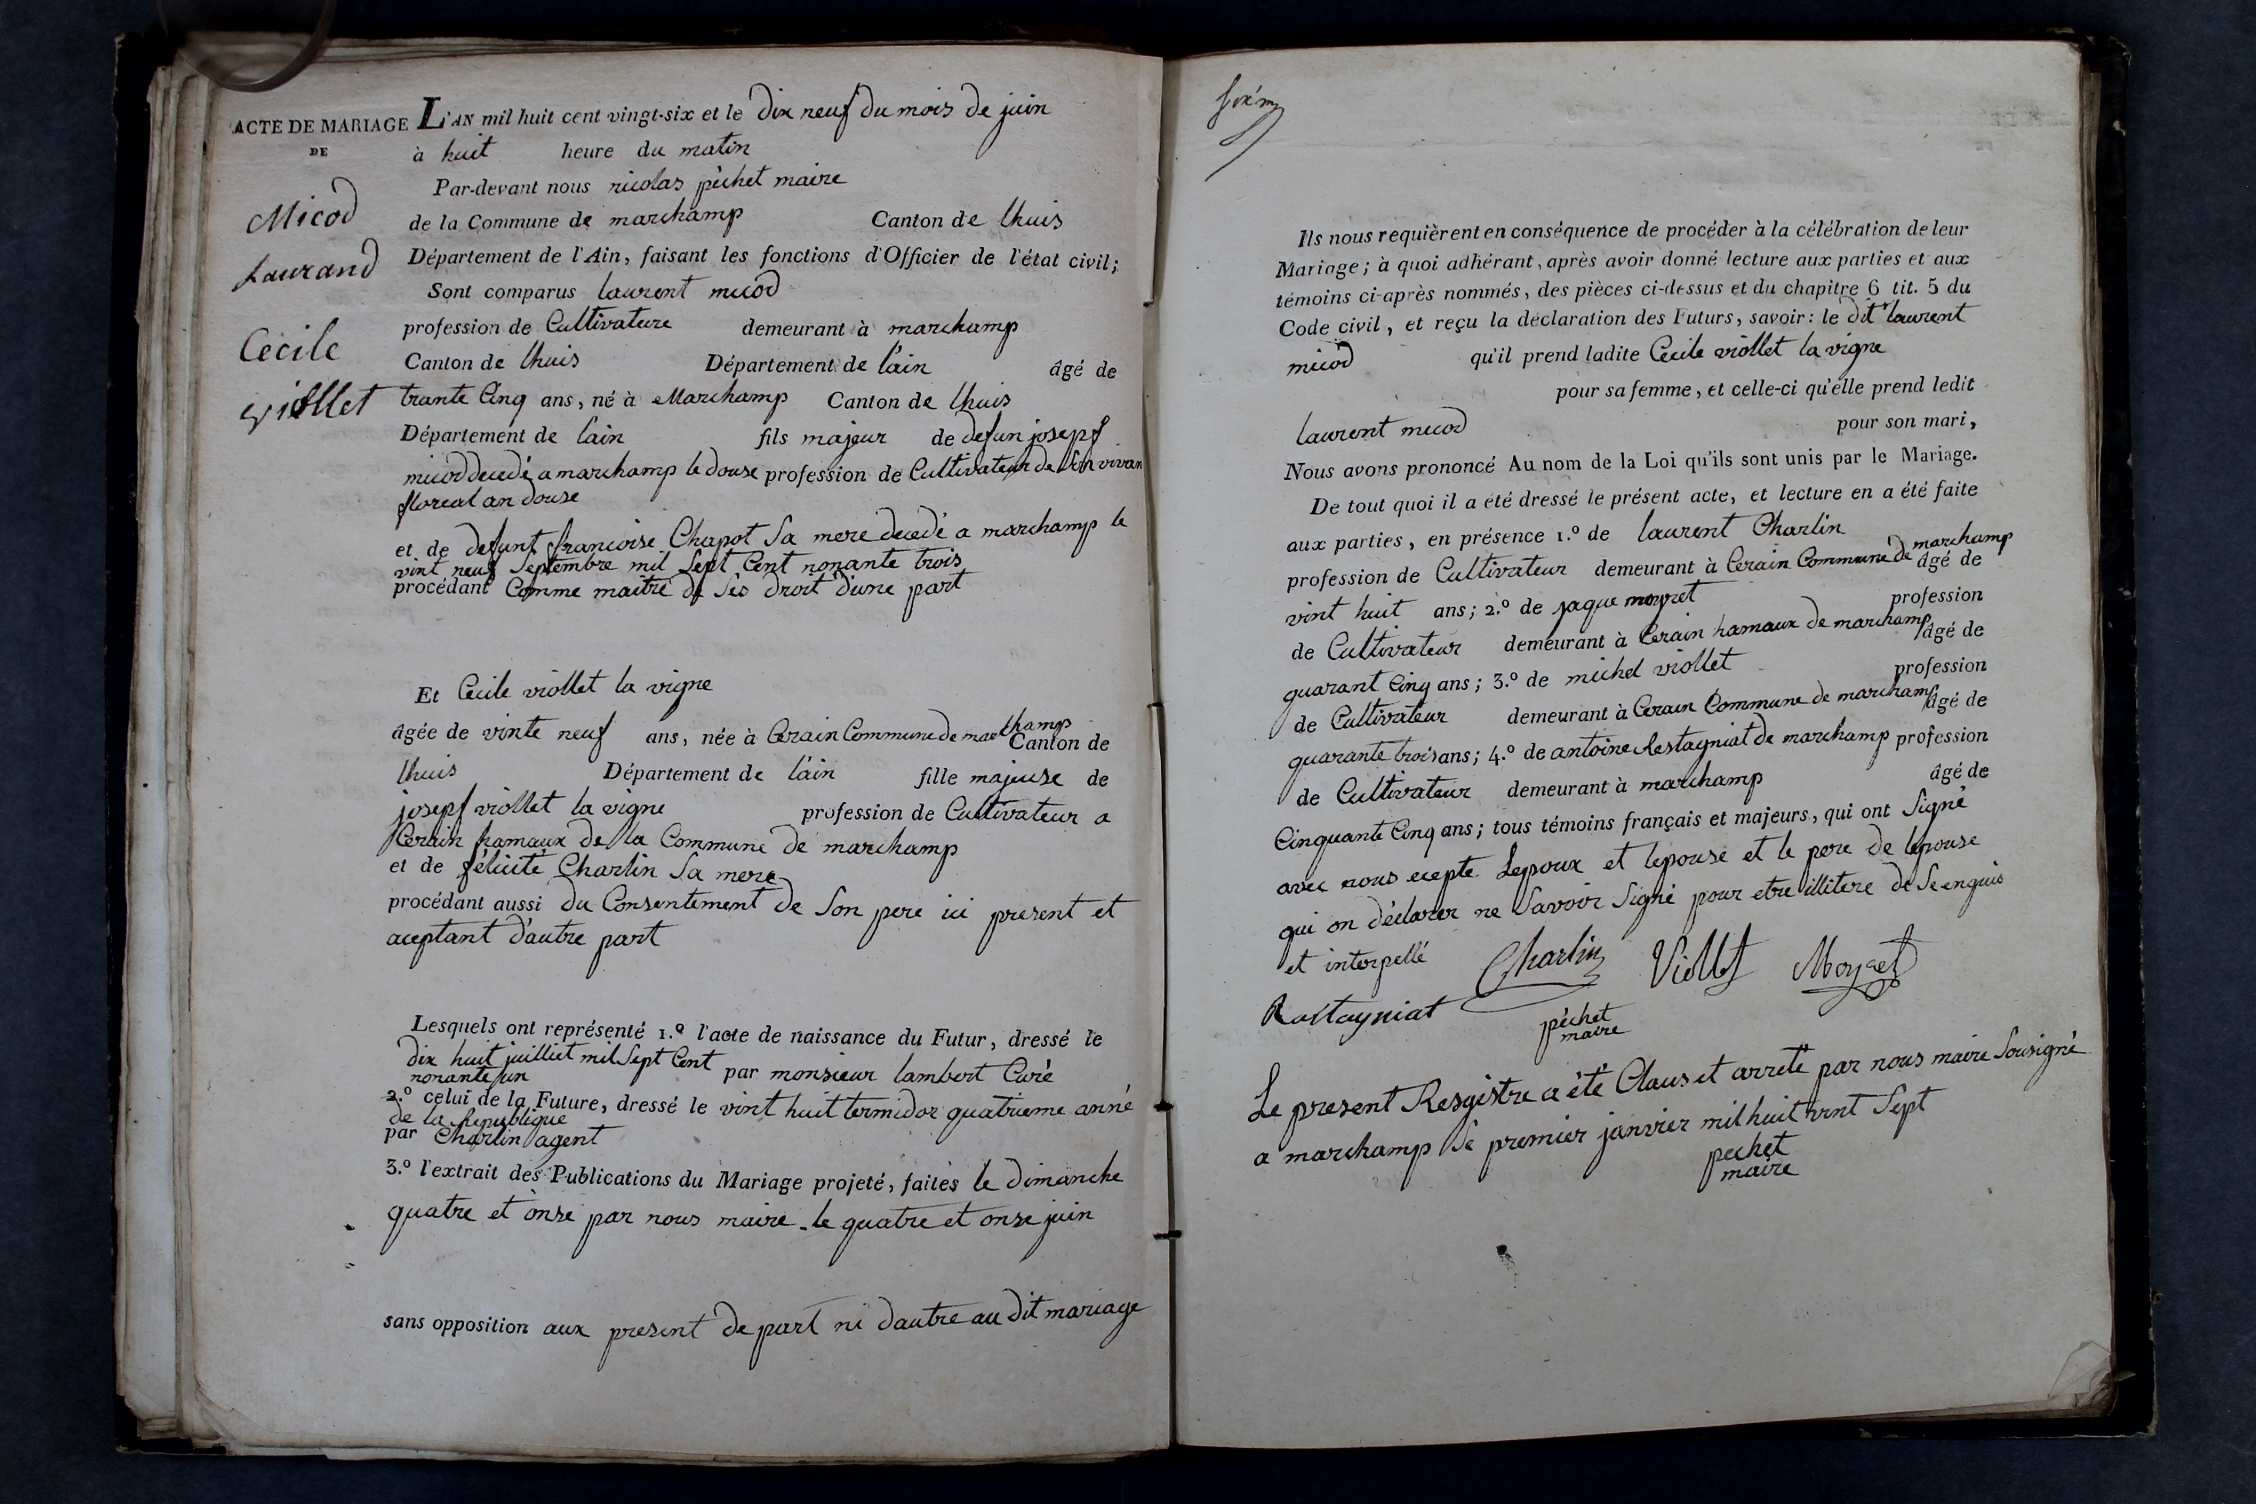 ACTE DE MARIAGE
DE
Micod
Laurand
Cécile
viollet
L'AN mil huit cent vingt-six et le dix neuf du mois de juin
à huit heure du matin
Par-devant nous nicolas pèchet maire
de la Commune de marchamp Canton de lhuis
Département de l'Ain, faisant les fonctions d'Officier de l'état civil;
Sont comparus laurent micod
profession de Cultivature demeurant à marchamp
Canton de lhuis Département de l'ain âgé de
trante Cinq ans, né à Marchamp Canton de lhuis
Département de lain fils majeur de defun josepf
micod decedé a marchamp le douse profession de Cultivateur de son vivan
floreal an douse
et de defunt francoise Chapot Sa mere decedé a marchamp le
vint neuf Septembre mil Sept Cent nonante trois
procédant Comme maitre de Ses droit d'une part
Et Cecile viollet la vigne
âgée de vinte neuf ans, née à Cerain Commune de marchamp Canton de
lhuis Département de l'ain fille majeuse de
josepf viollet la vigne profession de Cultivateur a
Cerain hamaux de la Commune de marchamp
et de félicité Charlin Sa mere
procédant aussi du Consentement de Son pere ici present et
aceptant d'autre part
Lesquels ont représenté 1.º l'acte de naissance du Futur, dressé le
dix huit juilliet mil Sept Cent
nonante un par monsieur lambert Curé
2.º celui de la Future, dressé le vint huit termidor quatrieme anné
de la Republique
par Charlin agent
3.º l'extrait des Publications du Mariage projeté, faites le dimanche
quatre et onse par nous maire le quatre et onse juin
sans opposition aux present de part ni dautre au dit mariage
Ils nous requièrent en conséquence de procéder à la célébration de leur
Mariage; à quoi adhérant, après avoir donné lecture aux parties et aux
témoins ci-après nommés, des pièces ci-dessus et du chapitre 6 tit. 5 du
Code civil, et reçu la déclaration des Futurs, savoir: le dit laurent
micod qu'il prend ladite Cecile viollet la vigne
pour sa femme, et celle-ci qu'elle prend ledit
laurent micod pour son mari,
Nous avons prononcé Au nom de la Loi qu'ils sont unis par le Mariage.
De tout quoi il a été dressé le présent acte, et lecture en a été faite
aux parties, en présence 1.º de laurent Charlin
profession de Cultivateur demeurant à Cerain Commune de marchamp âgé de
vint huit ans; 2.º de jaque moyret profession
de Cultivateur demeurant à Cerain hamaux de marchamp âgé de
quarant Cinq ans; 3.º de michel viollet profession
de Cultivateur demeurant à Cerain Commune de marchamp âgé de
quarante trois ans; 4.º de antoine Restagniat de marchamp profession
de Cultivateur demeurant à marchamp âgé de
Cinquante Cinq ans; tous témoins français et majeurs, qui ont Signé
avec nous ecepte Lepoux et lepouse et le pere de lepouse
qui on déclarer ne Savoir Signé pour etre illitere de Se enquis
et interpellé Charlin Viollet Moyret
Rastagniat pèchet
maire
Le present Resgistre a été Claus et arreté par nous maire Sousigné
a marchamp le premier janvier mil huit vint Sept
pechet
maire